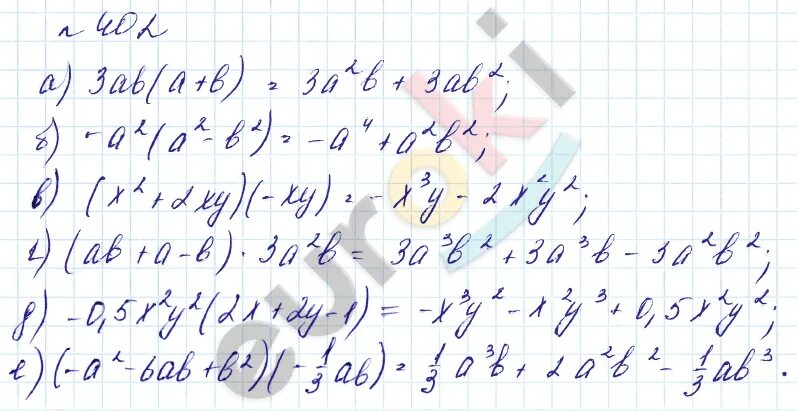 № 402
а) 3ab(a+b) = 3a²b + 3ab²;
б) -a²(a²-b²) = -a⁴ + a²b²;
в) (x²+2xy)(-xy) = -x³y - 2x²y²;
г) (ab+a-b)·3a²b = 3a³b² + 3a³b - 3a²b²;
д) -0,5x²y²(2x+2y-1) = -x³y² - x²y³ + 0,5x²y²;
е) (-a²-6ab+b²)(-1/3ab) = 1/3a³b + 2a²b² - 1/3ab³.
euroki